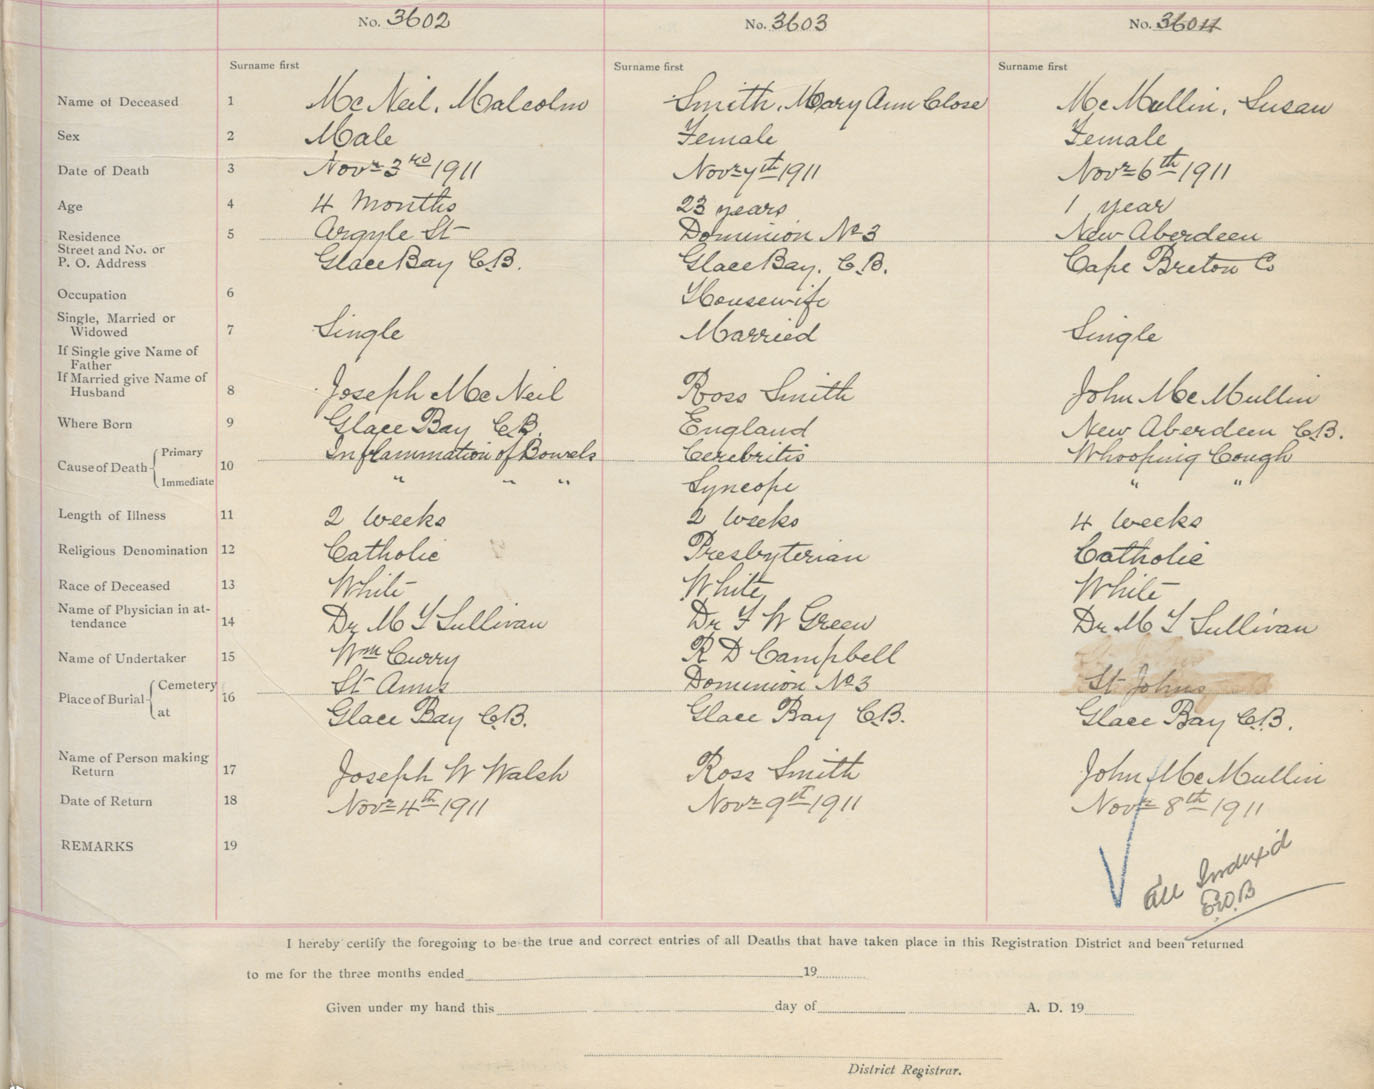 No. 3602 No. 3603 No. 3604
Surname first Surname first Surname first
Name of Deceased 1 McNeil, Malcolm Smith, Mary Ann Close McMullin, Susan
Sex 2 Male Female Female
Date of Death 3 Novr 3rd 1911 Novr 7th 1911 Novr 6th 1911
Age 4 4 Months 23 years 1 year
Residence 5 Argyle St Dominion No 3 New Aberdeen
Street and No. or
P. O. Address Glace Bay C.B. Glace Bay, C.B. Cape Breton Co
Occupation 6 Housewife
Single, Married or
Widowed 7 Single Married Single
If Single give Name of
Father
If Married give Name of
Husband 8 Joseph McNeil Ross Smith John McMullin
Where Born 9 Glace Bay C.B. England New Aberdeen C.B.
Cause of Death Primary 10 Inflammation of Bowels Cerebritis Whooping Cough
Immediate " " " Syncope " "
Length of Illness 11 2 weeks 2 weeks 4 weeks
Religious Denomination 12 Catholic Presbyterian Catholic
Race of Deceased 13 White White White
Name of Physician in at-
tendance 14 Dr M T Sullivan Dr F W Green Dr M T Sullivan
Name of Undertaker 15 Wm Curry R D Campbell
Place of Burial Cemetery 16 St Anns Dominion No 3 St Johns
at Glace Bay C.B. Glace Bay C.B. Glace Bay C.B.
Name of Person making
Return 17 Joseph W Walsh Ross Smith John McMullin
Date of Return 18 Novr 4th 1911 Novr 9th 1911 Novr 8th 1911
REMARKS 19
All Indexed
E.O.B
I hereby certify the foregoing to be the true and correct entries of all Deaths that have taken place in this Registration District and been returned
to me for the three months ended 19
Given under my hand this day of A. D. 19
District Registrar.